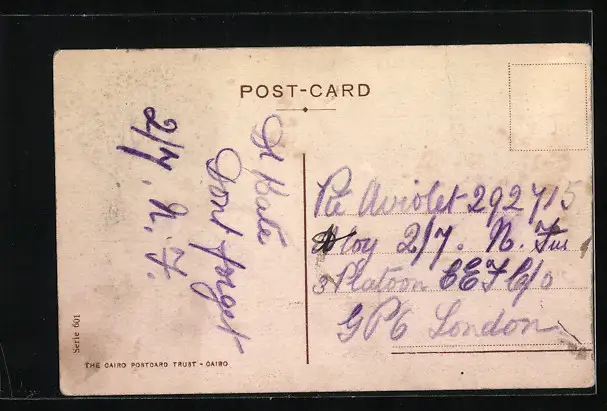 POST-CARD
Dont forget
2/7. N. F.
Pte Aviolet 292715
Coy 2/7. N. Fus
3 Platoon EEF C/o
GPO London
Serie 601
THE CAIRO POSTCARD TRUST - CAIRO